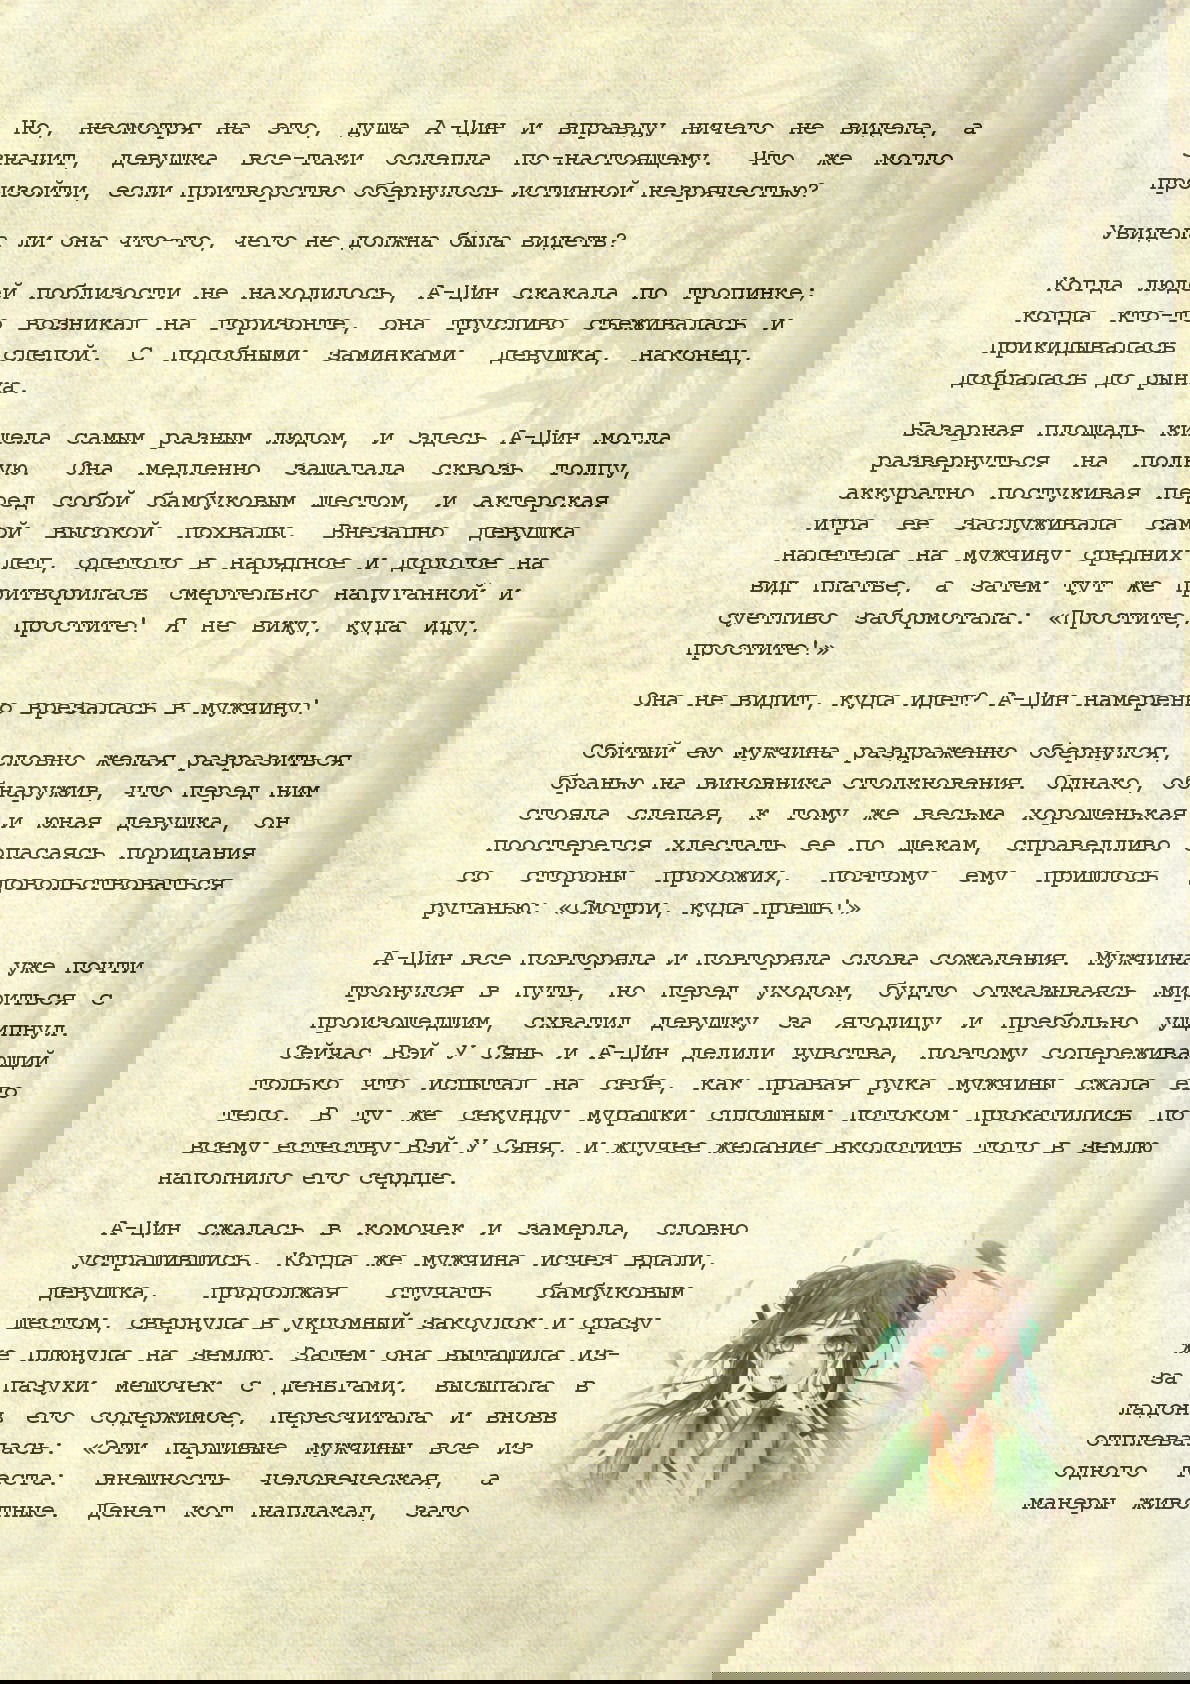 Но, несмотря на это, душа А-Цин и вправду ничего не видела, а
значит, девушка все-таки ослепла по-настоящему. Что же могло
произойти, если притворство обернулось истинной незрячестью?
Увидела ли она что-то, чего не должна была видеть?
Когда людей поблизости не находилось, А-Цин скакала по тропинке;
когда кто-то возникал на горизонте, она трусливо съеживалась и
прикидывалась слепой. С подобными заминками девушка, наконец,
добралась до рынка.
Базарная площадь кишела самым разным людом, и здесь А-Цин могла
развернуться на полную. Она медленно зашагала сквозь толпу,
аккуратно постукивая перед собой бамбуковым шестом, и актерская
игра ее заслуживала самой высокой похвалы. Внезапно девушка
налетела на мужчину средних лет, одетого в нарядное и дорогое на
вид платье, а затем тут же притворилась смертельно напуганной и
суетливо забормотала: «Простите, простите! Я не вижу, куда иду,
простите!»
Она не видит, куда идет? А-Цин намеренно врезалась в мужчину!
Сбитый ею мужчина раздраженно обернулся, словно желая разразиться
бранью на виновника столкновения. Однако, обнаружив, что перед ним
стояла слепая, к тому же весьма хорошенькая и юная девушка, он
поостерегся хлестать ее по щекам, справедливо опасаясь порицания
со стороны прохожих, поэтому ему пришлось довольствоваться
руганью: «Смотри, куда прешь!»
А-Цин все повторяла и повторяла слова сожаления. Мужчина уже почти
тронулся в путь, но перед уходом, будто отказываясь мириться с
произошедшим, схватил девушку за ягодицу и пребольно ущипнул.
Сейчас Вэй У Сянь и А-Цин делили чувства, поэтому сопереживающий
только что испытал на себе, как правая рука мужчины сжала его
тело. В ту же секунду мурашки сплошным потоком прокатились по
всему естеству Вэй У Сяня, и жгучее желание вколотить того в землю
наполнило его сердце.
А-Цин сжалась в комочек и замерла, словно
устрашившись. Когда же мужчина исчез вдали,
девушка, продолжая стучать бамбуковым
шестом, свернула в укромный закоулок и сразу
же плюнула на землю. Затем она вытащила из-
за пазухи мешочек с деньгами, высыпала в
ладонь его содержимое, пересчитала и вновь
отплевалась: «Эти паршивые мужчины все из
одного теста: внешность человеческая, а
манеры животные. Денег кот наплакал, зато